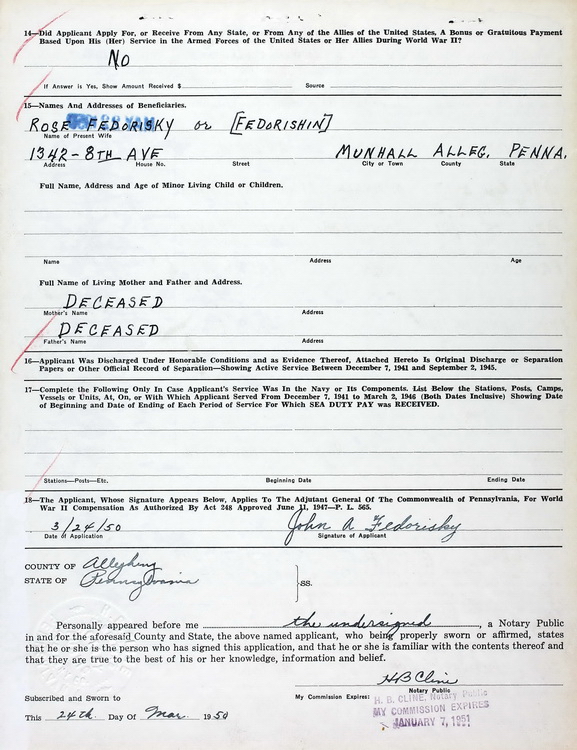 14—Did Applicant Apply For, or Receive From Any State, or From Any of the Allies of the United States, A Bonus or Gratuitous Payment
Based Upon His (Her) Service in the Armed Forces of the United States or Her Allies During World War II?
No
If Answer is Yes, Show Amount Received $ Source
15—Names And Addresses of Beneficiaries.
ROSE FEDORISKY or [FEDORISHIN]
Name of Present Wife
1342-8TH AVE MUNHALL ALLEG. PENNA.
Address House No. Street City or Town County State
Full Name, Address and Age of Minor Living Child or Children.
Name Address Age
Full Name of Living Mother and Father and Address.
DECEASED
Mother's Name Address
DECEASED
Father's Name Address
16—Applicant Was Discharged Under Honorable Conditions and as Evidence Thereof, Attached Hereto Is Original Discharge or Separation
Papers or Other Official Record of Separation—Showing Active Service Between December 7, 1941 and September 2, 1945.
17—Complete the Following Only In Case Applicant's Service Was In the Navy or Its Components. List Below the Stations, Posts, Camps,
Vessels or Units, At, On, or With Which Applicant Served From December 7, 1941 to March 2, 1946 (Both Dates Inclusive) Showing Date
of Beginning and Date of Ending of Each Period of Service For Which SEA DUTY PAY was RECEIVED.
Stations—Posts—Etc. Beginning Date Ending Date
18—The Applicant, Whose Signature Appears Below, Applies To The Adjutant General Of The Commonwealth of Pennsylvania, For World
War II Compensation As Authorized By Act 248 Approved June 11, 1947—P. L. 565.
3/24/50 John A Fedorisky
Date of Application Signature of Applicant
COUNTY OF Allegheny
STATE OF Pennsylvania }SS.
Personally appeared before me the undersigned, a Notary Public
in and for the aforesaid County and State, the above named applicant, who being properly sworn or affirmed, states
that he or she is the person who has signed this application, and that he or she is familiar with the contents thereof and
that they are true to the best of his or her knowledge, information and belief.
H B Cline
Notary Public
Subscribed and Sworn to My Commission Expires:
H. B. CLINE, Notary Public
MY COMMISSION EXPIRES
JANUARY 7, 1951
This 24th Day Of Mar. 1950